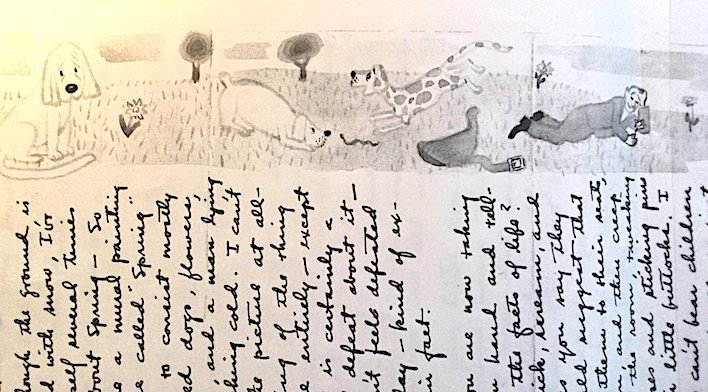 ough the ground is
d with snow, I've
self several times
bout Spring – So
e a mural painting
e called "Spring"
to consist mostly
d dogs, flowers,
and a man lying
hing cold. I can't
e picture at all –
ng of the thing
e entirely – except
is certainly a
defeat about it –
t feel defeated
lay – kind of ex-
in fact.
ou are now taking
hand and tell-
the facts of life?
k, scream, and
s you say they
d suggest that
them to their seats,
and then creep
the room tweaking
s and sticking pins
little buttocks. I
can't bear children